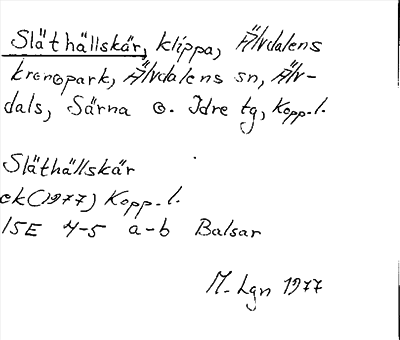 Släthällskär, klippa, Älvdalens
kronopark, Älvdalens sn, Älv-
dals, Särna o. Idre tg, Kopp. l.
Släthällskär
ek (1977) Kopp. l.
15E 4-5 a-b Balsar
M. Lgn 1977